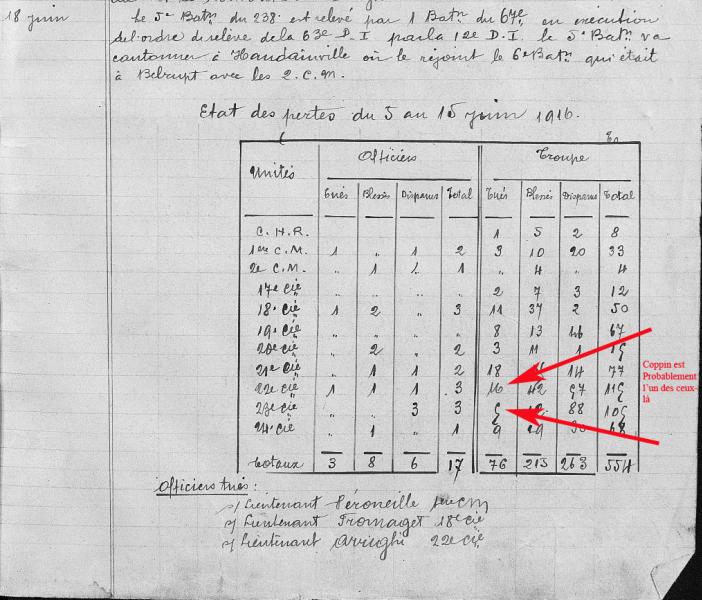 18 juin
Le 5e Batn. du 238: est relevé par 1 Batn du 67e, en exécution
de l'ordre de relève de la 63e D.I par la 12e D.I. le 5e Batn va
cantonner à Haudainville où le rejoint le 6e Batn qui était
à Belrupt avec les 2. C.M.
Etat des pertes du 5 au 15 juin 1916.
Unités Officiers Troupe
Tués Blessés Disparus Total Tués Blessés Disparus Total
C.H.R. 1 5 2 8
1ere C.M. 1 " 1 2 3 10 20 33
2e C.M. " 1 1 " 4 " 4
17e Cie " " " " 2 7 3 12
18e Cie 1 2 " 3 11 37 2 50
19e Cie " " " " 8 13 46 67
20e Cie " 2 " 2 3 11 1 15
21e Cie " 1 1 2 18 14 77
22e Cie 1 1 1 3 16 42 57 115
23e Cie " " 3 3 5 12 88 105
24e Cie " 1 " 1 9 29 30 68
Totaux 3 8 6 17 76 215 263 554
Coppin est
Probablement
l'un des ceux-
là
Officiers tués :
1/ Lieutenant Péroneille 1ere CM
2/ Lieutenant Fromaget 18e Cie
3/ Lieutenant Arrighi 22e Cie